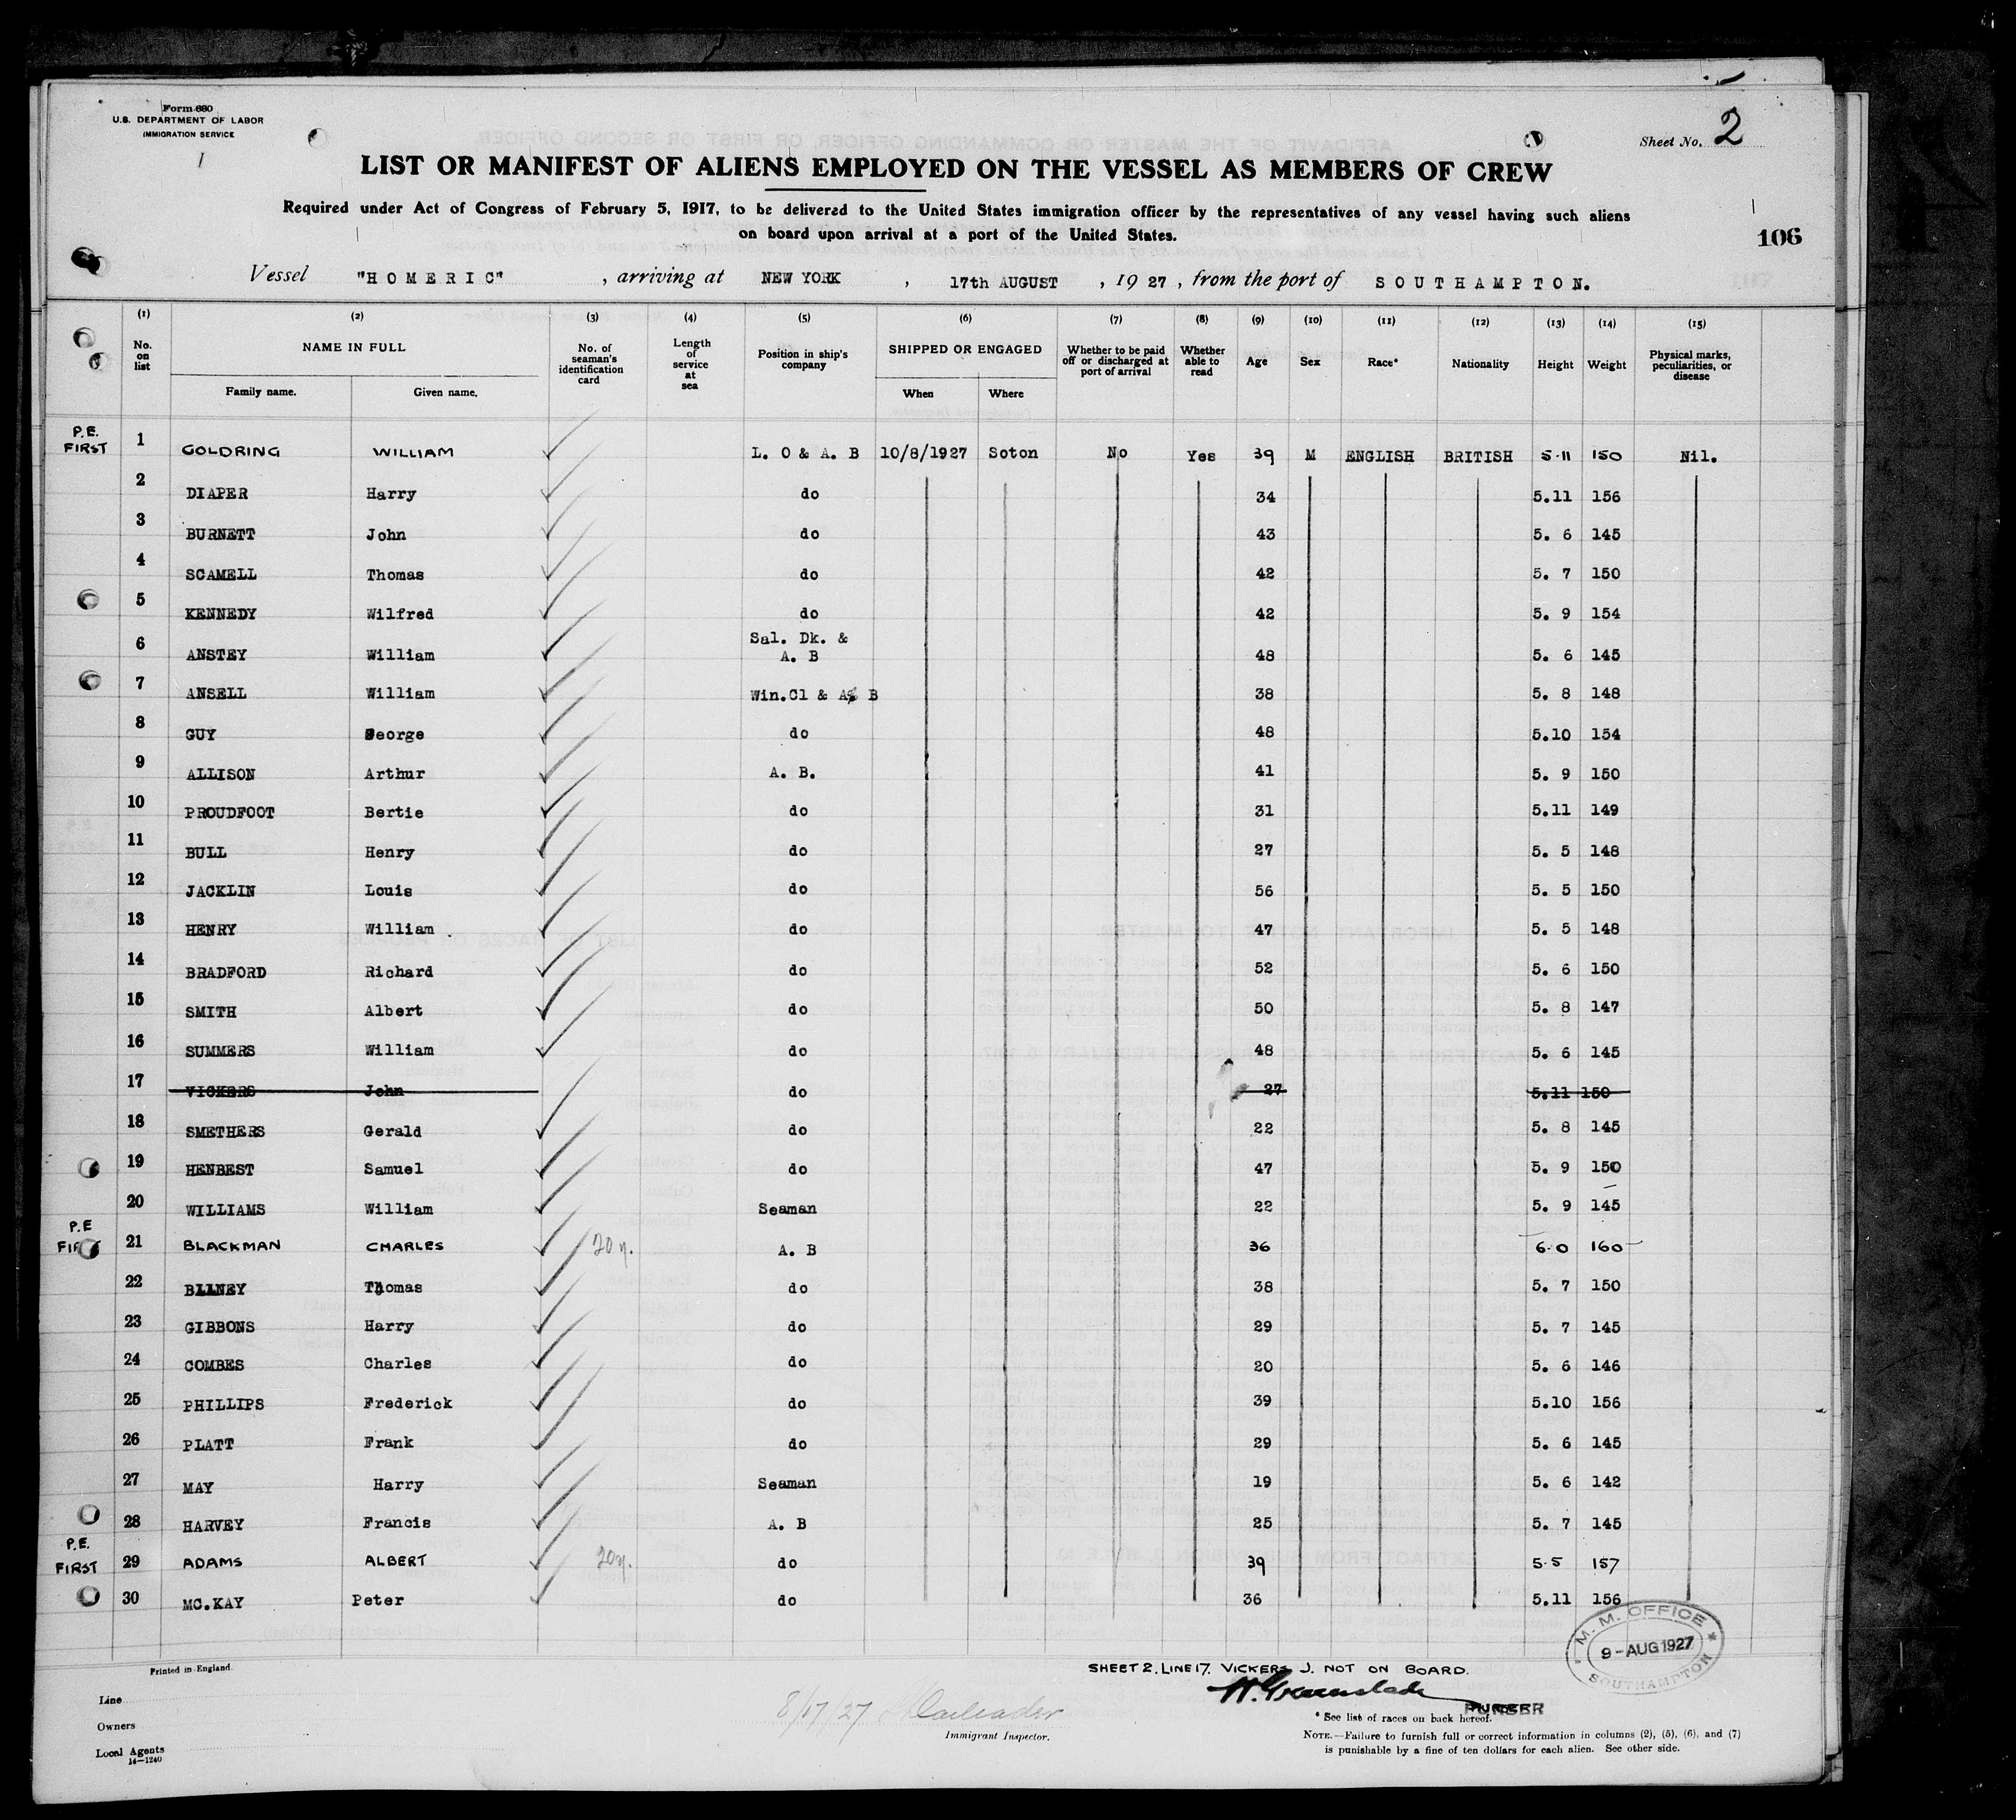 Form 680
U.S. DEPARTMENT OF LABOR
IMMIGRATION SERVICE
Sheet No. 2
LIST OR MANIFEST OF ALIENS EMPLOYED ON THE VESSEL AS MEMBERS OF CREW
Required under Act of Congress of February 5, 1917, to be delivered to the United States immigration officer by the representatives of any vessel having such aliens
on board upon arrival at a port of the United States.
106
Vessel "HOMERIC", arriving at NEW YORK, 17th AUGUST, 1927, from the port of SOUTHAMPTON.
(1) (2) (3) (4) (5) (6) (7) (8) (9) (10) (11) (12) (13) (14) (15)
No. on list NAME IN FULL Family name. Given name. No. of seaman's identification card Length of service at sea Position in ship's company SHIPPED OR ENGAGED When Where Whether to be paid off or discharged at port of arrival Whether able to read Age Sex Race* Nationality Height Weight Physical marks, peculiarities, or disease
P.E. FIRST 1 GOLDRING WILLIAM L. O & A. B 10/8/1927 Soton No Yes 39 M ENGLISH BRITISH 5.11 150 Nil.
2 DIAPER Harry do 34 5.11 156
3 BURNETT John do 43 5. 6 145
4 SCAMELL Thomas do 42 5. 7 150
5 KENNEDY Wilfred do 42 5. 9 154
6 ANSTEY William Sal. Dk. & A. B 48 5. 6 145
7 ANSELL William Win.Cl & A. B 38 5. 8 148
8 GUY George do 48 5.10 154
9 ALLISON Arthur A. B. 41 5. 9 150
10 PROUDFOOT Bertie do 31 5.11 149
11 BULL Henry do 27 5. 5 148
12 JACKLIN Louis do 56 5. 5 150
13 HENRY William do 47 5. 5 148
14 BRADFORD Richard do 52 5. 6 150
15 SMITH Albert do 50 5. 8 147
16 SUMMERS William do 48 5. 6 145
17 VICKERS John do 27 5.11 150
18 SMETHERS Gerald do 22 5. 8 145
19 HENBEST Samuel do 47 5. 9 150
20 WILLIAMS William Seaman 22 5. 9 145
P.E FIRST 21 BLACKMAN CHARLES 20y. A. B 36 6.0 160
22 Thomas do 38 5. 7 150
23 GIBBONS Harry do 29 5. 7 145
24 COMBES Charles do 20 5. 6 146
25 PHILLIPS Frederick do 39 5.10 156
26 PLATT Frank do 29 5. 6 145
27 MAY Harry Seaman 19 5. 6 142
28 HARVEY Francis A. B 25 5. 7 145
P.E. FIRST 29 ADAMS ALBERT 20y. do 39 5.5 157
30 MC.KAY Peter do 36 5.11 156
M. M. OFFICE
9-AUG1927
SOUTHAMPTON
Printed in England.
SHEET 2. LINE 17. VICKERS J. NOT ON BOARD.
Line
Owners
Local Agents
14—1240
8/17/27
Immigrant Inspector.
PURSER
* See list of races on back hereof.
NOTE.—Failure to furnish full or correct information in columns (2), (5), (6), and (7)
is punishable by a fine of ten dollars for each alien. See other side.